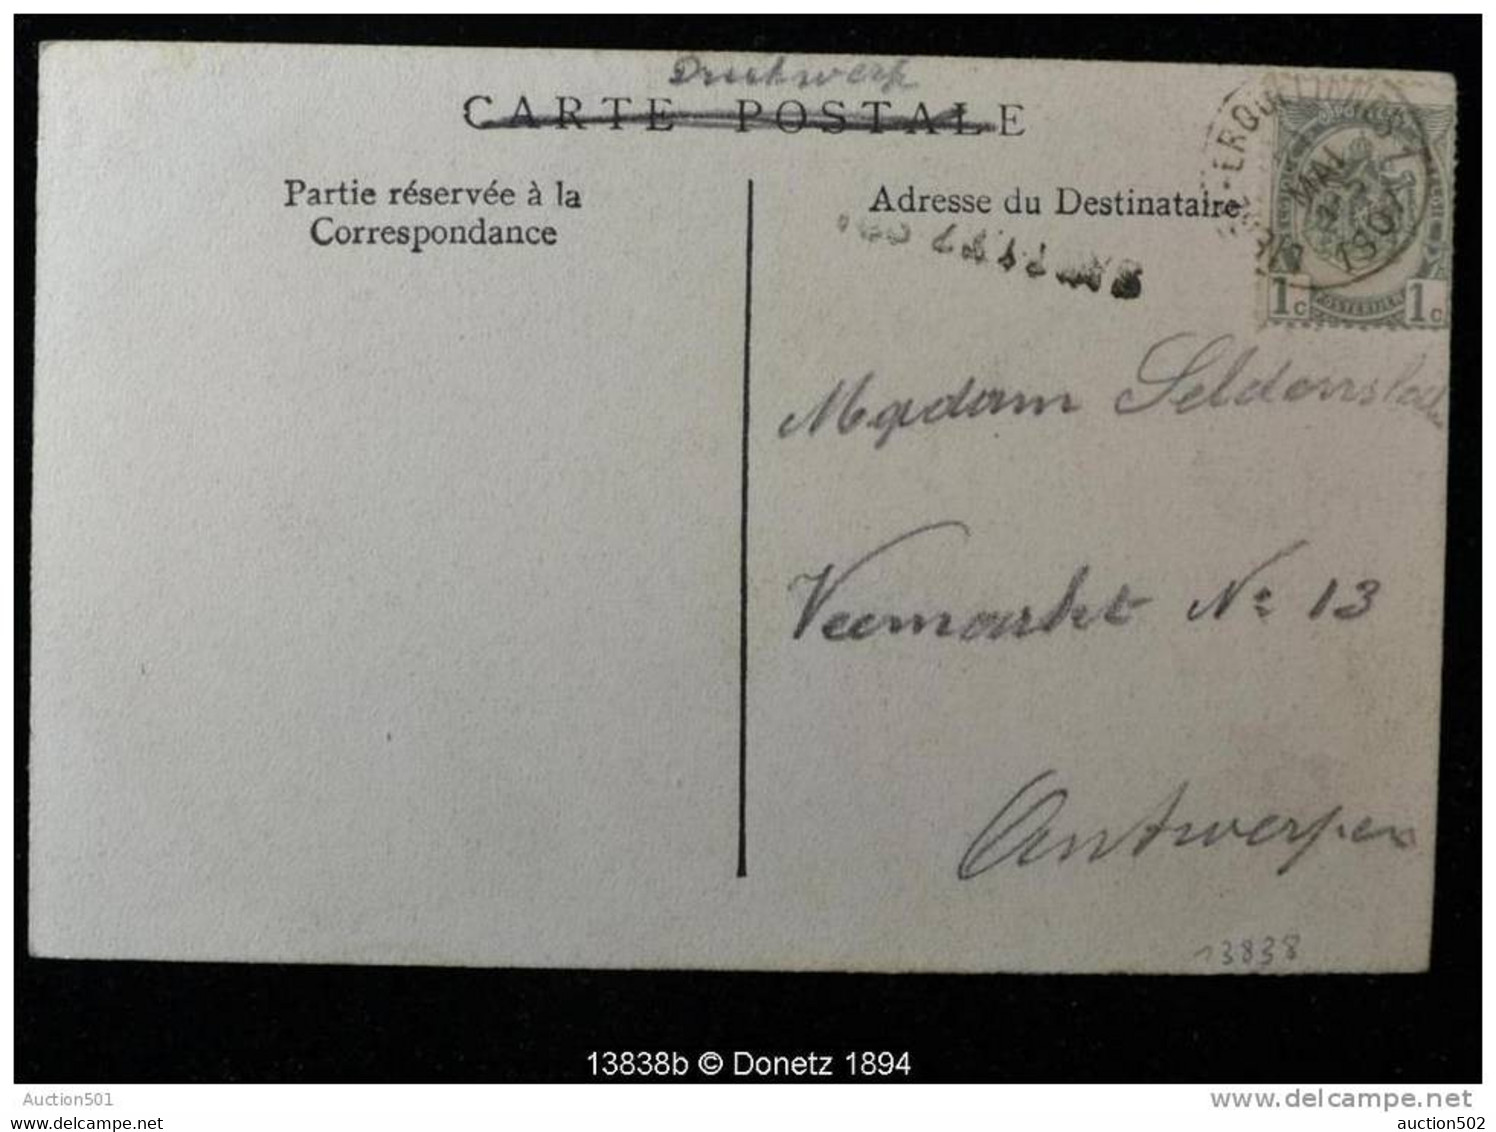 Drukwerk
CARTE POSTALE
Partie réservée à la
Correspondance
Adresse du Destinataire
MAI
1907
1c 1c
Madam
Veemarkt No 13
Antwerpen
13838
13838b © Donetz 1894
Auction501
www.delcampe.net
auction502